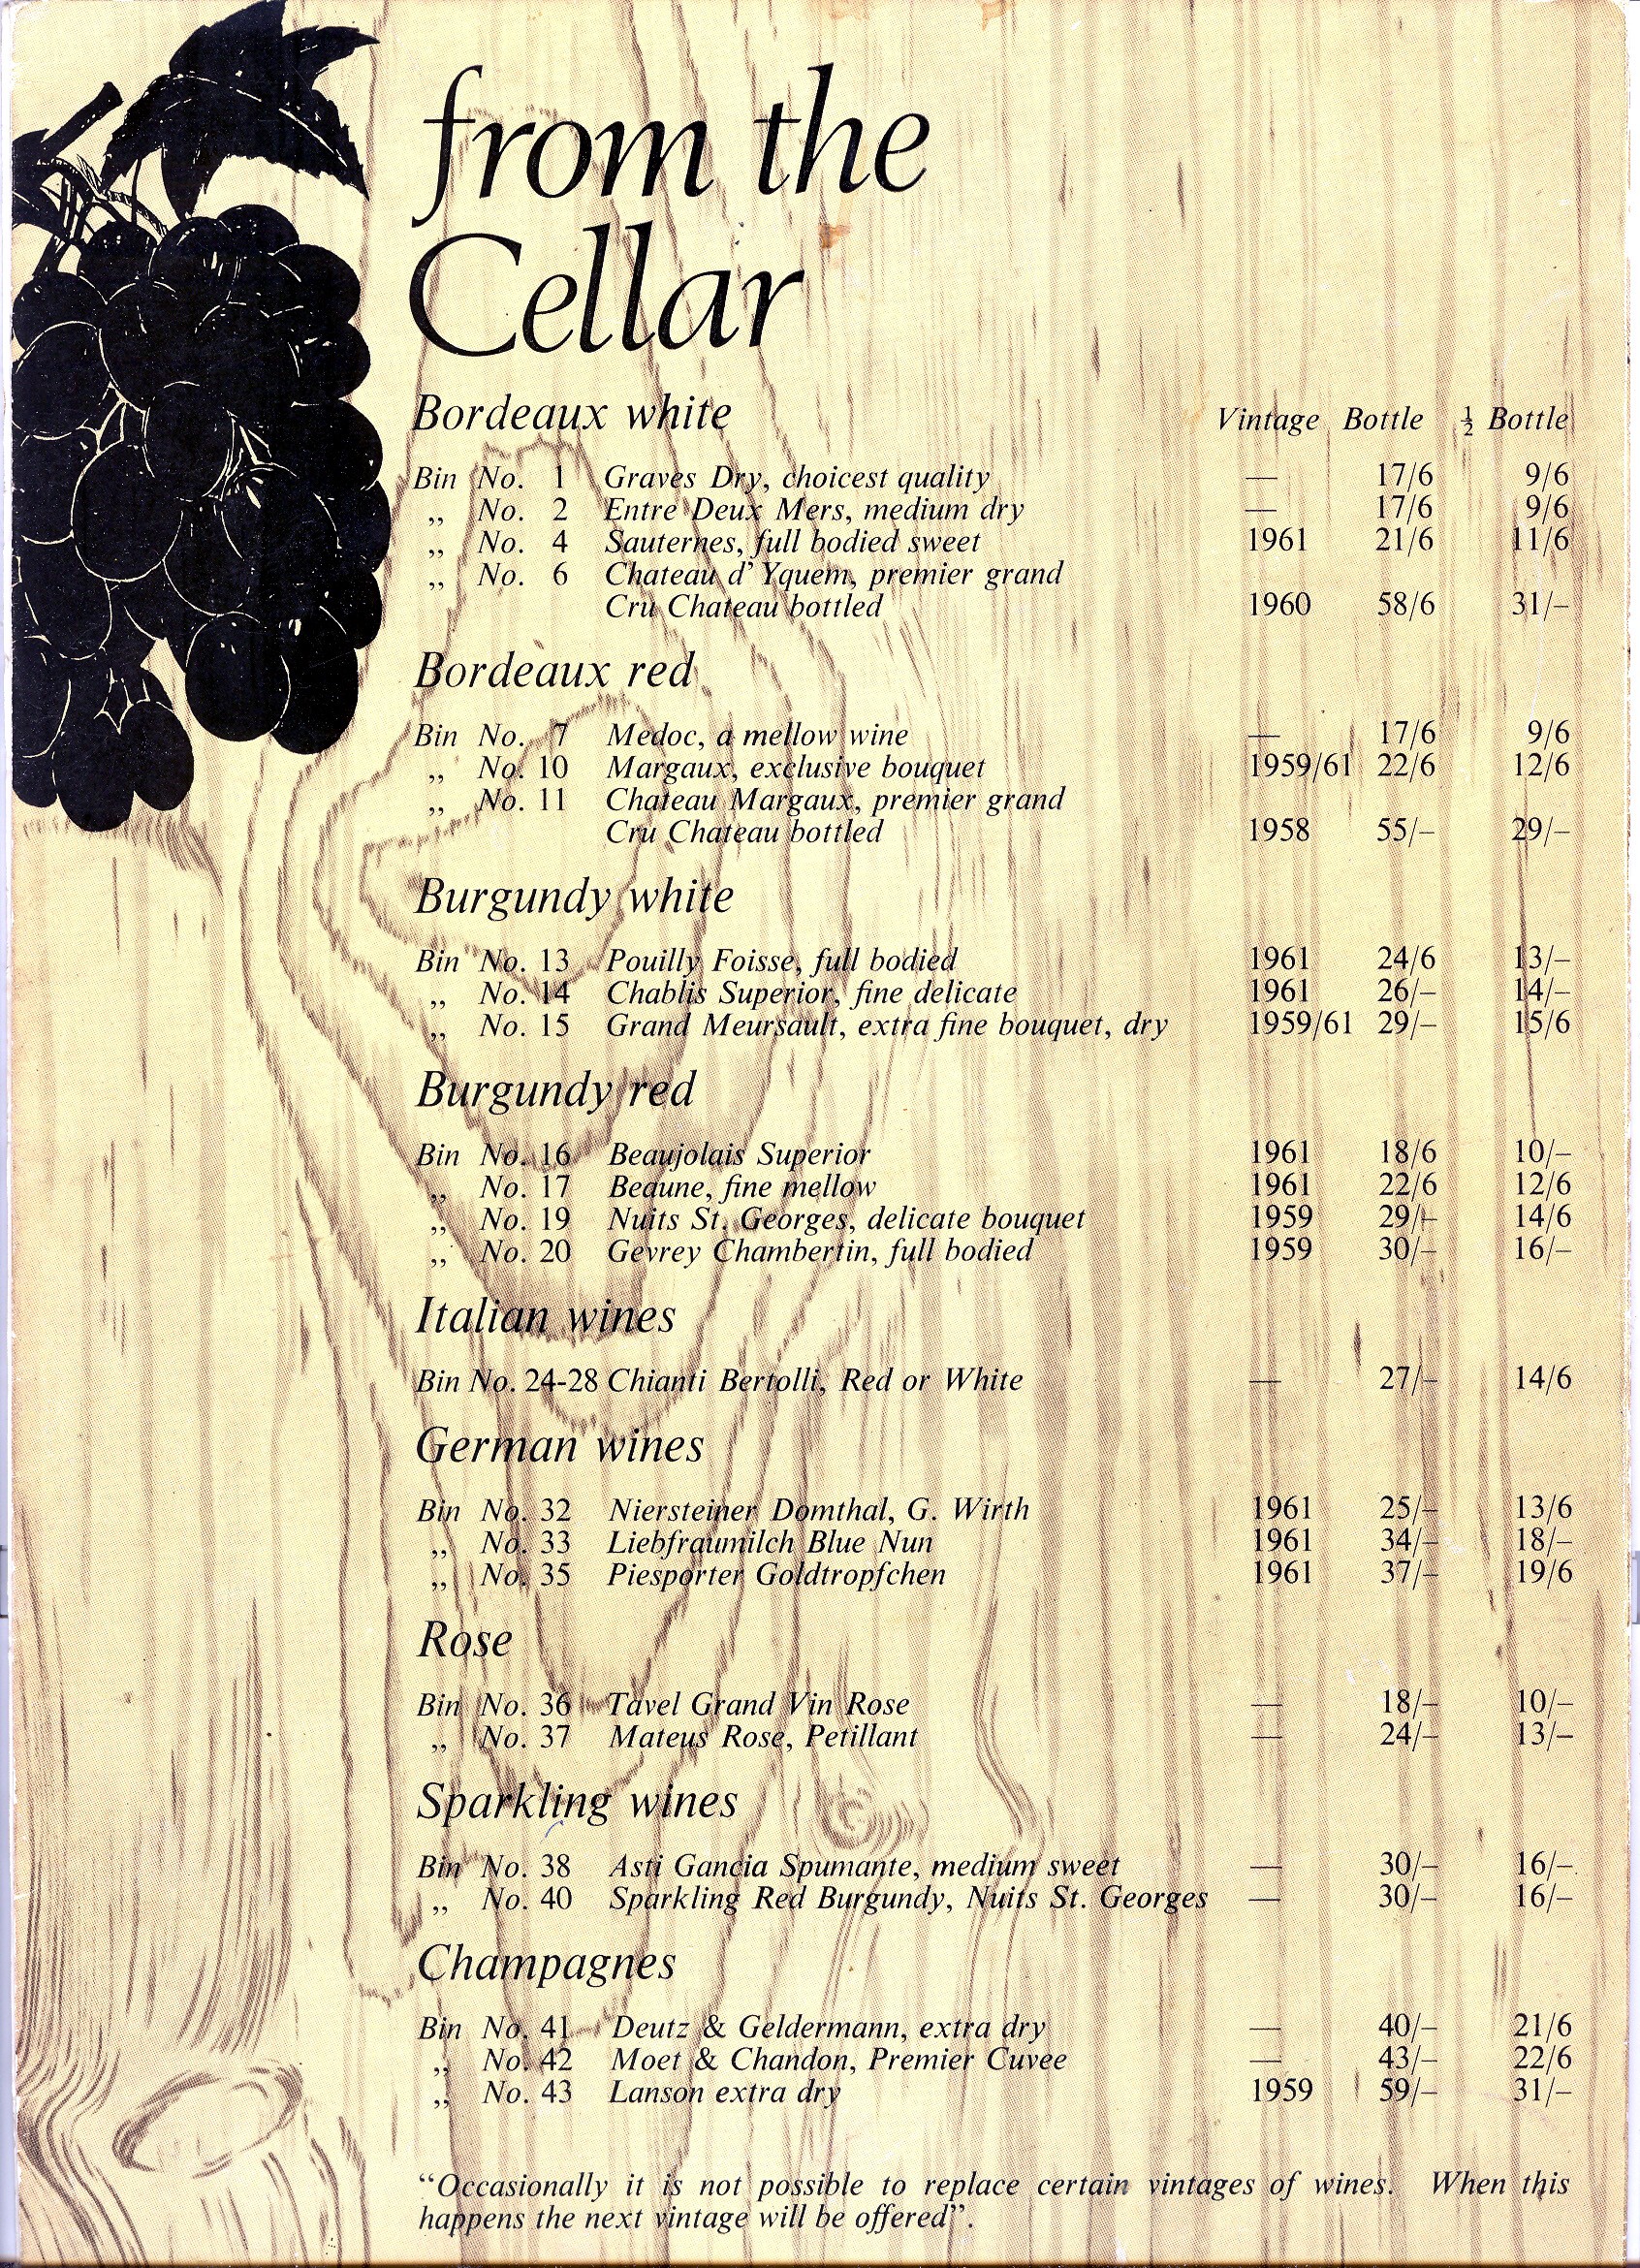 from the
Cellar
Bordeaux white Vintage Bottle ½ Bottle
Bin No. 1 Graves Dry, choicest quality — 17/6 9/6
„ No. 2 Entre Deux Mers, medium dry — 17/6 9/6
„ No. 4 Sauternes, full bodied sweet 1961 21/6 11/6
„ No. 6 Chateau d'Yquem, premier grand
Cru Chateau bottled 1960 58/6 31/–
Bordeaux red
Bin No. 7 Medoc, a mellow wine — 17/6 9/6
„ No. 10 Margaux, exclusive bouquet 1959/61 22/6 12/6
„ No. 11 Chateau Margaux, premier grand
Cru Chateau bottled 1958 55/– 29/–
Burgundy white
Bin No. 13 Pouilly Foisse, full bodied 1961 24/6 13/–
„ No. 14 Chablis Superior, fine delicate 1961 26/– 14/–
„ No. 15 Grand Meursault, extra fine bouquet, dry 1959/61 29/– 15/6
Burgundy red
Bin No. 16 Beaujolais Superior 1961 18/6 10/–
„ No. 17 Beaune, fine mellow 1961 22/6 12/6
„ No. 19 Nuits St. Georges, delicate bouquet 1959 29/– 14/6
„ No. 20 Gevrey Chambertin, full bodied 1959 30/– 16/–
Italian wines
Bin No. 24-28 Chianti Bertolli, Red or White — 27/– 14/6
German wines
Bin No. 32 Niersteiner Domthal, G. Wirth 1961 25/– 13/6
„ No. 33 Liebfraumilch Blue Nun 1961 34/– 18/–
„ No. 35 Piesporter Goldtropfchen 1961 37/– 19/6
Rose
Bin No. 36 Tavel Grand Vin Rose — 18/– 10/–
„ No. 37 Mateus Rose, Petillant — 24/– 13/–
Sparkling wines
Bin No. 38 Asti Gancia Spumante, medium sweet — 30/– 16/–
„ No. 40 Sparkling Red Burgundy, Nuits St. Georges — 30/– 16/–
Champagnes
Bin No. 41 Deutz & Geldermann, extra dry — 40/– 21/6
„ No. 42 Moet & Chandon, Premier Cuvee — 43/– 22/6
„ No. 43 Lanson extra dry 1959 59/– 31/–
“Occasionally it is not possible to replace certain vintages of wines. When this
happens the next vintage will be offered”.